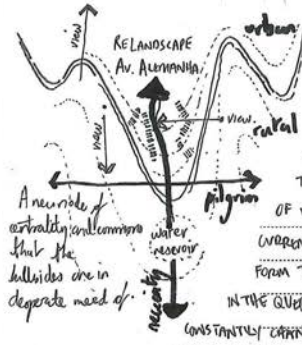 view
urban
RELANDSCAPE
AV. ALEMANHA
view
view
rural
pilgrim
A new node of
centrality and commons
that the
hillsides are in
desperate need of.
water
reservoir
necessity
T
OF
CURREN
FORM T
IN THE QUE
CONSTANTLY CHAN